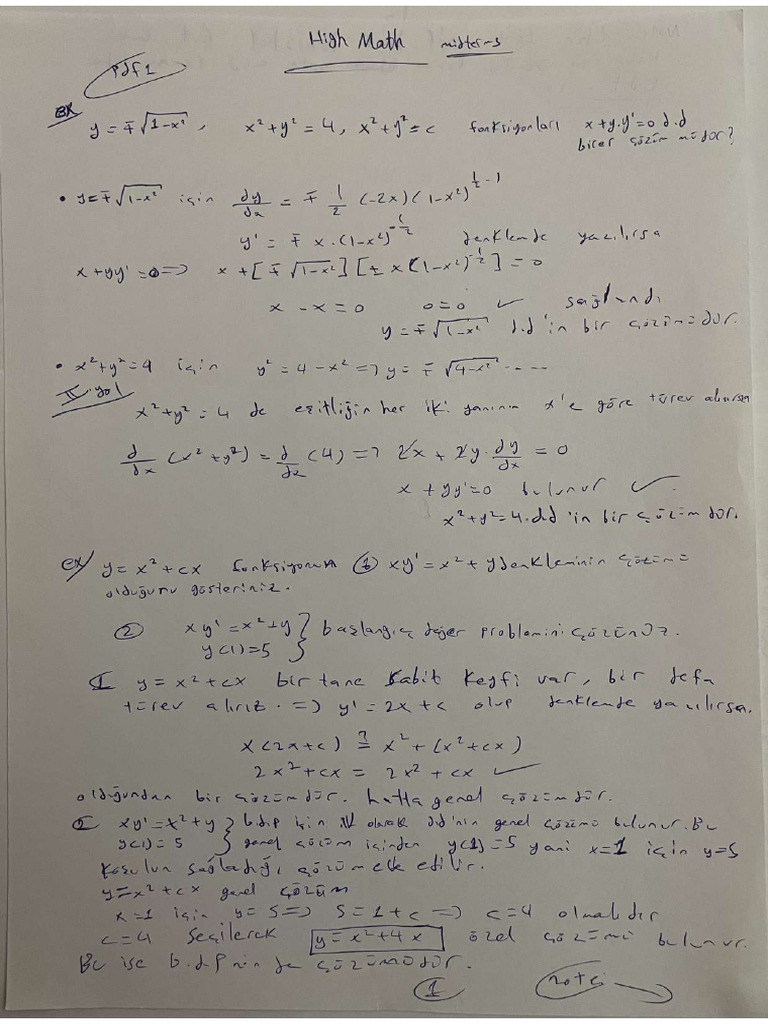 High Math midterms
pdf1
Ex
y = ∓√(1-x²), x²+y² = 4, x²+y² = c fonksiyonları x+y.y'=0 d.d
birer çözüm müdür?
• y=∓√(1-x²) için dy/dx = ∓ 1/2 (-2x)(1-x²)^(1/2 - 1)
y' = ∓ x.(1-x²)^(-1/2) denklemde yazılırsa
x+yy'=0 => x+[∓√(1-x²)][± x(1-x²)^(-1/2)] = 0
x - x = 0 0=0 ✓ sağlandı
y=∓√(1-x²) d.d'in bir çözümüdür.
• x²+y²=4 için y² = 4-x² => y = ∓√(4-x²) ....
II. yol
x²+y² = 4 de eşitliğin her iki yanının x'e göre türev alırsan
d/dx (x²+y²) = d/dx (4) => 2x + 2y.dy/dx = 0
x + yy'=0 bulunur ✓.
x²+y²=4 d.d'in bir çözümdür.
ex/ y = x²+cx fonksiyonun ① xy' = x²+y denkleminin çözümü
olduğunu gösteriniz.
② xy' = x²+y } başlangıç değer problemini çözünüz.
y(1)=5
1 y = x²+cx bir tane sabit keyfi var, bir defa
türev alırız. => y' = 2x+c olup denklemde yazılırsa.
x(2x+c) ≟ x²+(x²+cx)
2x²+cx = 2x²+cx ✓
olduğundan bir çözümdür. hatta genel çözümdür.
2 xy'=x²+y } b.d.p için ilk olarak d.d'nin genel çözümü bulunur. Bu
y(1)=5 } genel çözüm içinden y(1)=5 yani x=1 için y=5
koşulun sağladığı çözüm elde edilir.
y=x²+cx genel çözüm
x=1 için y=5 => 5=1+c => c=4 olmalıdır
c=4 seçilerek y=x²+4x özel çözümü bulunur.
Bu ise b.d.p nin de çözümüdür.
①